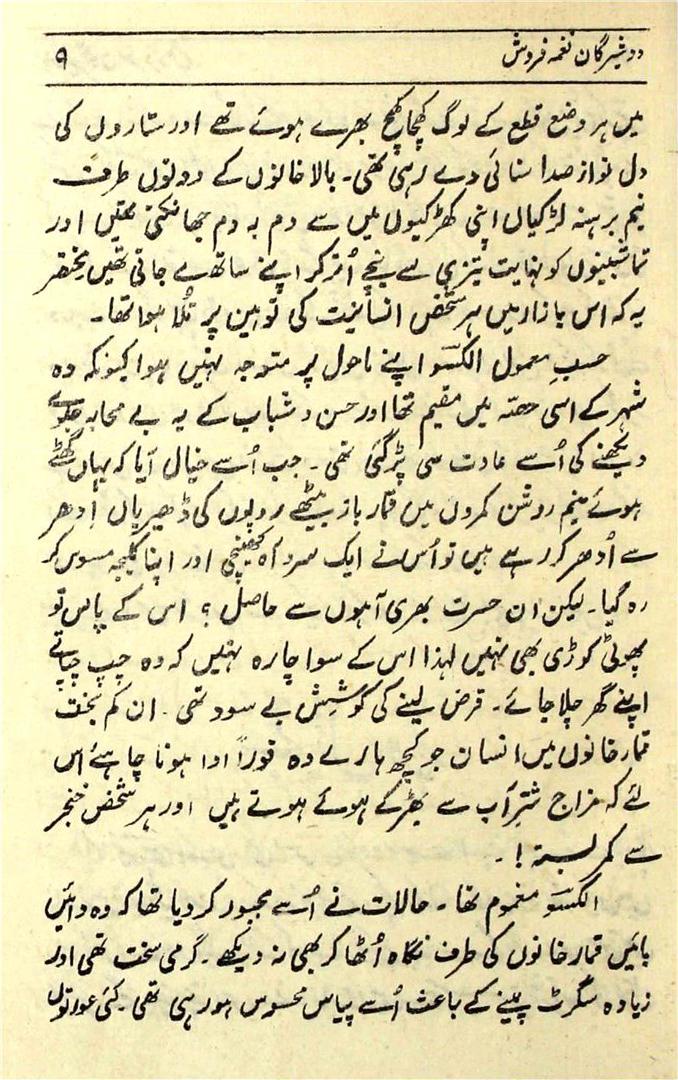 دوشیزگان نغمہ فروش ۹
میں ہر وضع قطع کے لوگ کھچا کھچ بھرے ہوئے تھے اور ستاروں کی
دل نواز صدا سنائی دے رہی تھی۔ بالا خانوں کے دونوں طرف
نیم برہنہ لڑکیاں اپنی کھڑکیوں میں سے دم بہ دم جھانکتی تھیں اور
تماشبینوں کو نہایت تیزی سے نیچے اُتر کر اپنے ساتھ لے جاتی تھیں مختصر
یہ کہ اس بازار میں ہر شخص انسانیت کی توہین پر تُلا ہوا تھا۔
حسبِ معمول الکسو اپنے ماحول پر متوجہ نہیں ہوا کیونکہ وہ
شہر کے اسی حصّہ میں مقیم تھا اور حسن و شباب کے یہ بے محابہ جلوے
دیکھنے کی اُسے عادت سی پڑ گئی تھی۔ جب اُسے خیال آیا کہ یہاں گھٹے
ہوئے نیم روشن کمروں میں قمار باز بیٹھے روپوں کی ڈھیریاں اِدھر
سے اُدھر کر رہے ہیں تو اُس نے ایک سرد آہ کھینچی اور اپنا کلیجہ مسوس کر
رہ گیا۔ لیکن ان حسرت بھری آہوں سے حاصل؟ اس کے پاس تو
پھوٹی کوڑی بھی نہیں لہٰذا اس کے سوا چارہ نہیں کہ وہ چپ چپاتے
اپنے گھر چلا جائے۔ قرض لینے کی کوشش بے سود تھی۔ ان کم بخت
قمار خانوں میں انسان جو کچھ ہارے وہ فوراً ادا ہونا چاہئے اس
لئے کہ مزاج شرآب سے بھڑکے ہوئے ہوتے ہیں اور ہر شخص خنجر
سے کمر بستہ!۔
الکسو مغموم تھا۔ حالات نے اُسے مجبور کر دیا تھا کہ وہ دائیں
بائیں قمار خانوں کی طرف نگاہ اُٹھا کر بھی نہ دیکھے۔ گرمی سخت تھی اور
زیادہ سگرٹ پینے کے باعث اُسے پیاس محسوس ہو رہی تھی۔ کئی عورتوں